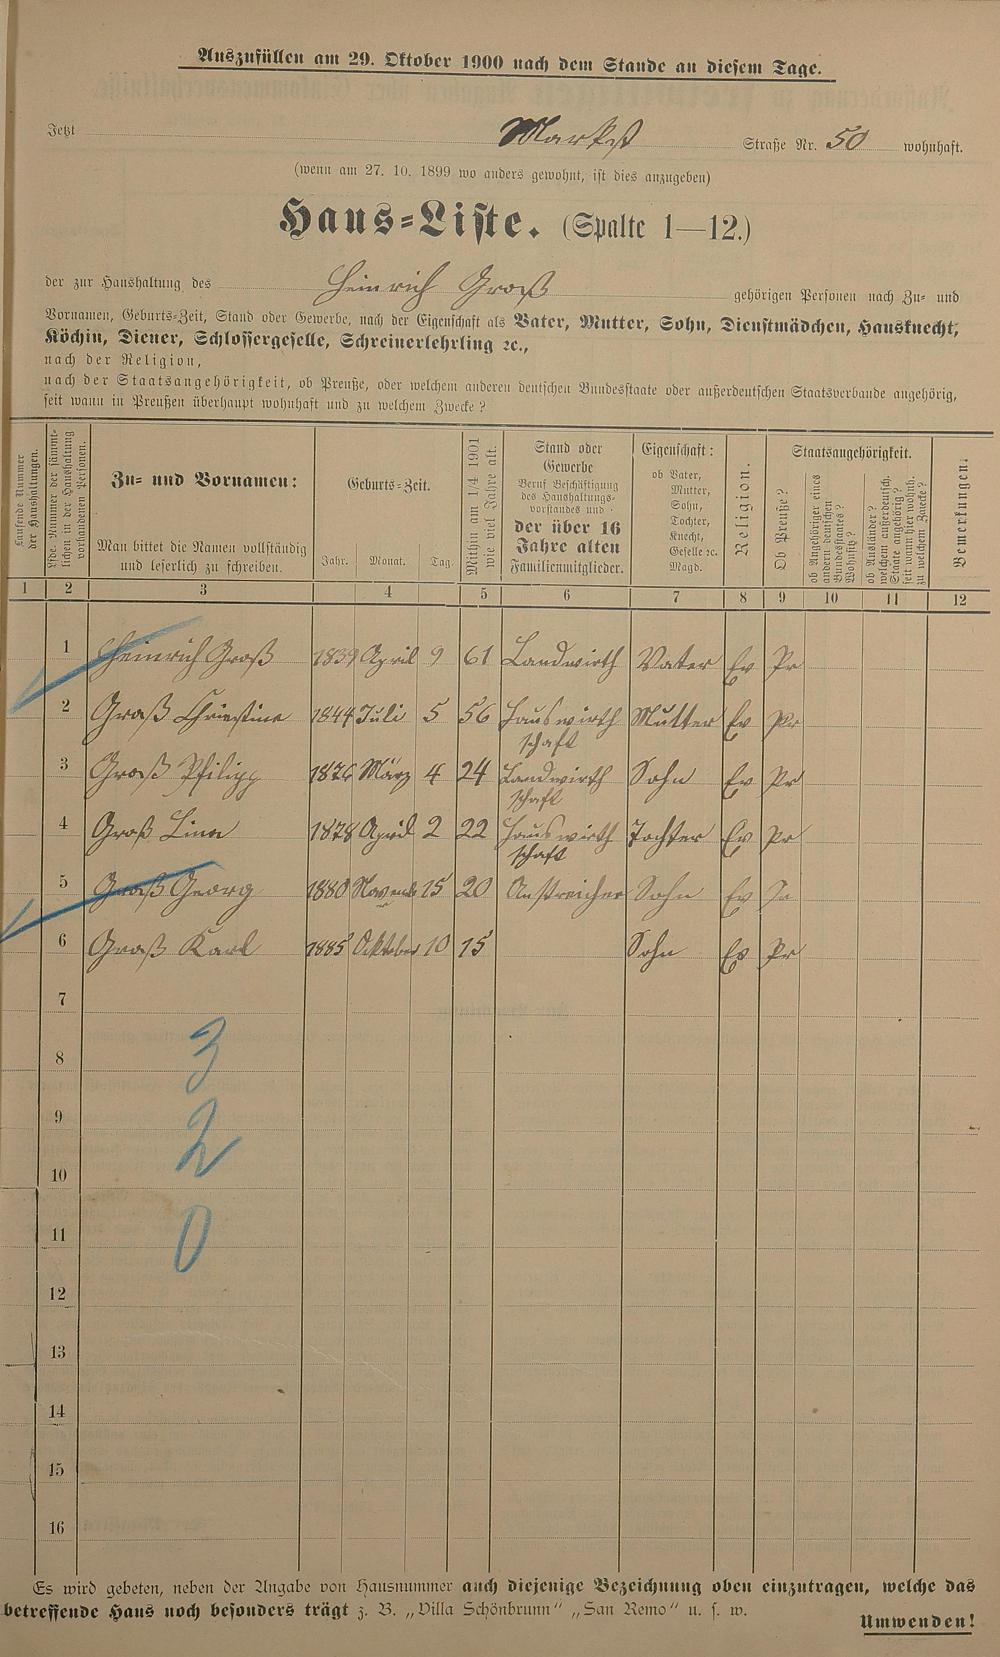 Auszufüllen am 29. Oktober 1900 nach dem Stande an diesem Tage.
Jetzt Markst Straße Nr. 50 wohnhaft.
(wenn am 27. 10. 1899 wo anders gewohnt, ist dies anzugeben)
Haus-Liste. (Spalte 1—12.)
der zur Haushaltung des Heinrich Groß gehörigen Personen nach Zu- und
Vornamen, Geburts-Zeit, Stand oder Gewerbe, nach der Eigenschaft als Vater, Mutter, Sohn, Dienstmädchen, Hausknecht,
Köchin, Diener, Schlossergeselle, Schreinerlehrling ꝛc.,
nach der Religion,
nach der Staatsangehörigkeit, ob Preuße, oder welchem anderen deutschen Bundesstaate oder außerdeutschen Staatsverbande angehörig,
seit wann in Preußen überhaupt wohnhaft und zu welchem Zwecke?
Laufende Nummer
der Haushaltungen.
Lfde. Nummer der sämmt-
lichen in der Haushaltung
vorhandenen Personen.
Zu- und Vornamen:
Man bittet die Namen vollständig
und leserlich zu schreiben.
Geburts-Zeit.
Jahr. Monat. Tag.
Mithin am 1/4 1901
wie viel Jahre alt.
Stand oder
Gewerbe
Beruf Beschäftigung
des Haushaltungs-
vorstandes und
der über 16
Jahre alten
Familienmitglieder.
Eigenschaft:
ob Vater,
Mutter,
Sohn,
Tochter,
Knecht,
Geselle ꝛc.
Magd.
Religion.
Staatsangehörigkeit.
Ob Preuße?
ob Angehöriger eines
andern deutschen
Bundesstaates?
Wohnsitz?
ob Ausländer?
welchem außerdeutsch.
Staate angehörig?
seit wann hier wohnh.
zu welchem Zwecke?
Bemerkungen.
1 2 3 4 5 6 7 8 9 10 11 12
1 Heinrich Groß 1839 April 9 61 Landwirth Vater Ev Pr
2 Groß Christine 1844 Juli 5 56 Hauswirth Mutter Ev Pr
schaft
3 Groß Philipp 1876 März 4 24 Landwirth Sohn Ev Pr
schaft
4 Groß Lina 1878 April 2 22 Hauswirth Tochter Ev Pr
schaft
5 Groß Georg 1880 Novemb 15 20 Anstreicher Sohn Ev
6 Groß Karl 1885 Oktober 10 15 Sohn Ev Pr
7
3
8
9
2
10
11
0
12
13
14
15
16
Es wird gebeten, neben der Angabe von Hausnummer auch diejenige Bezeichnung oben einzutragen, welche das
betreffende Haus noch besonders trägt z. B. „Villa Schönbrunn“ „San Remo“ u. s. w.
Umwenden!